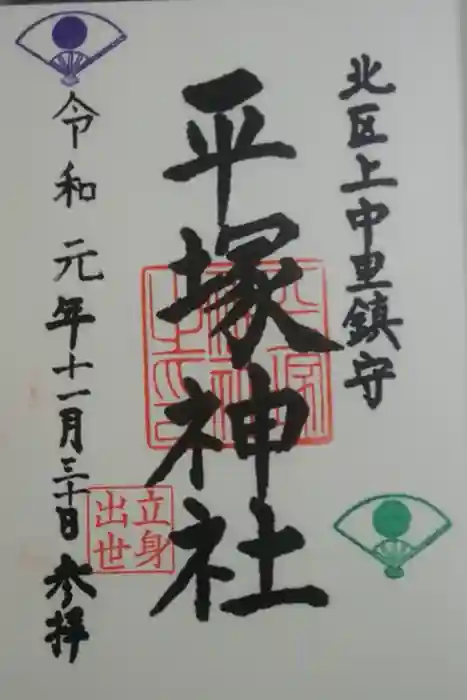 北区上中里鎮守
平塚神社
令和元年十一月三十日参拝
立身
出世